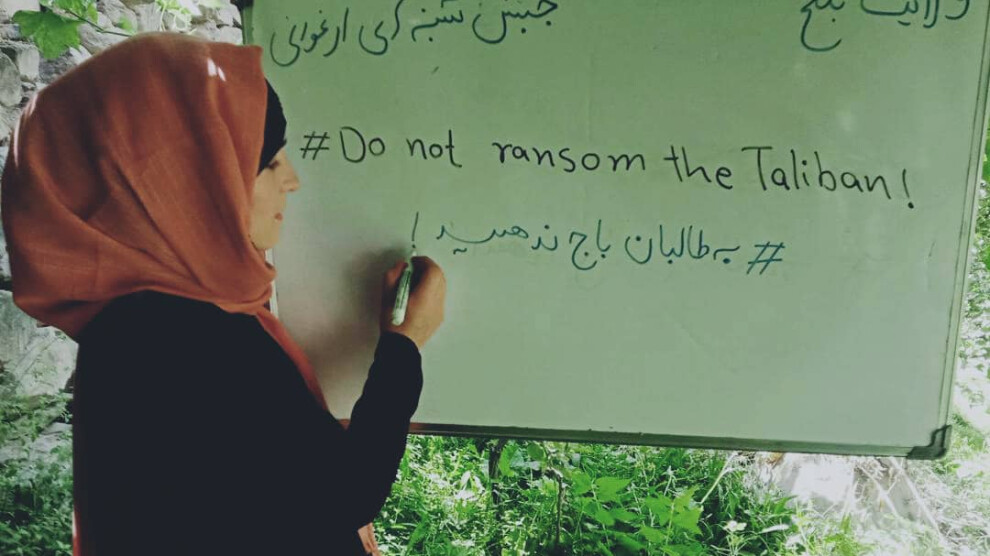 ولایت بلخ
جنبش شنبه های ارغوانی
#Do not ransom the Taliban!
# به طالبان باج ندهید!